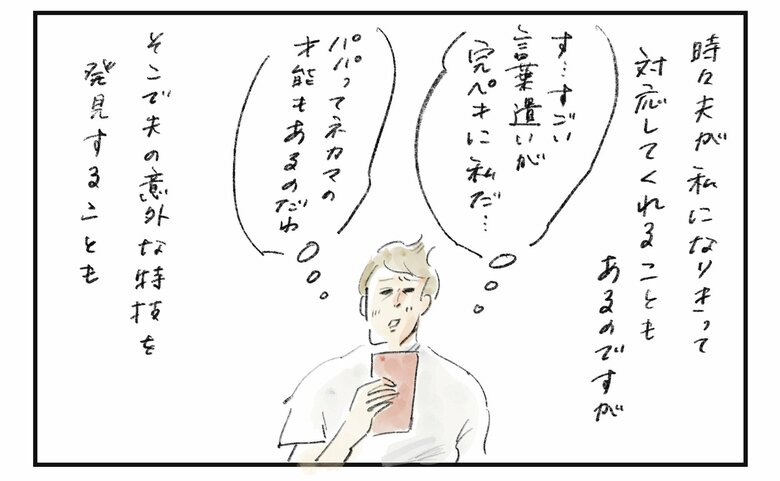 時々夫が私になりきって
対応してくれることも
あるのですが
す…すごい
言葉遣いが
完ペキに私だ…
パパってネカマの
才能もあるのだわ
そこで夫の意外な特技を
発見することも